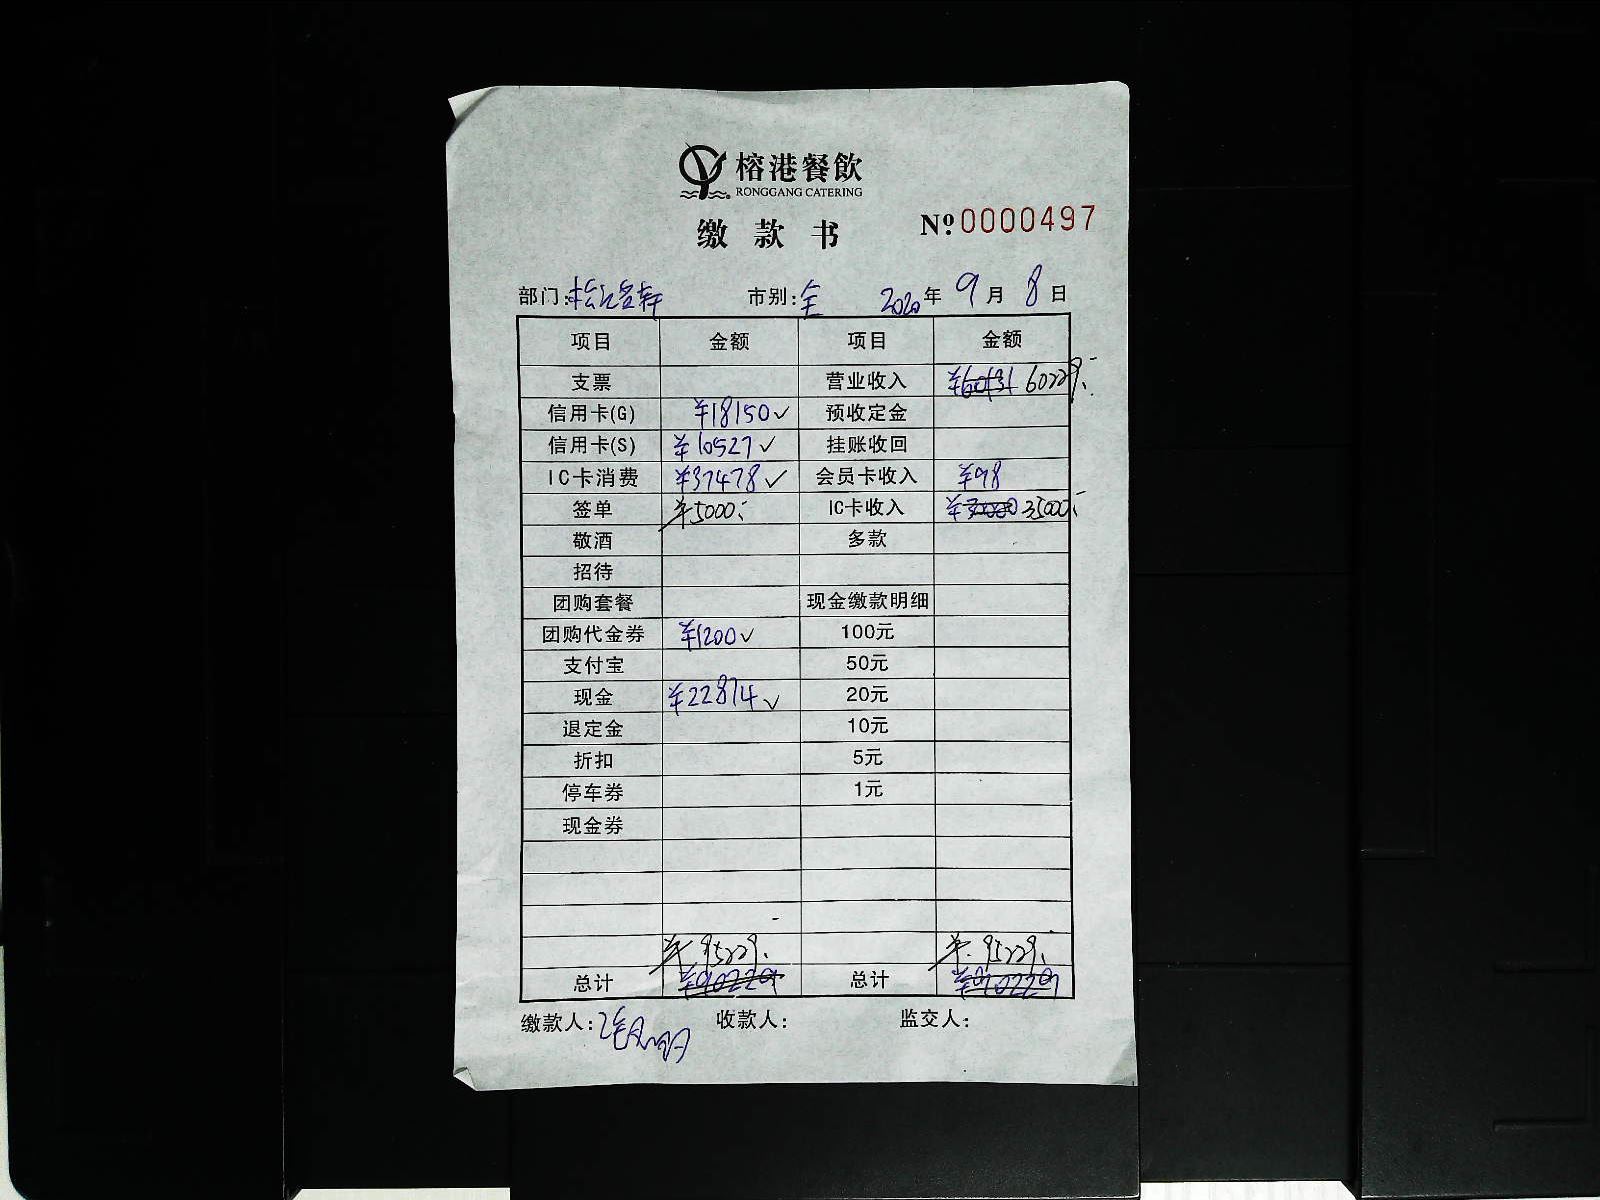 榕港餐飲
RONGGANG CATERING
缴款书
Nº 0000497
部门: 市别:全 2020年9月8日
项目 金额 项目 金额
支票 营业收入 60229.
信用卡(G) ¥18150✓ 预收定金
信用卡(S) ¥10527✓ 挂账收回
IC卡消费 ¥37478✓ 会员卡收入 ¥98
签单 ¥5000 IC卡收入 35000
敬酒 多款
招待
团购套餐 现金缴款明细
团购代金券 ¥1200✓ 100元
支付宝 50元
现金 ¥22874✓ 20元
退定金 10元
折扣 5元
停车券 1元
现金券
¥95229. ¥95229.
总计 ¥90229 总计 ¥90229
缴款人: 收款人: 监交人: